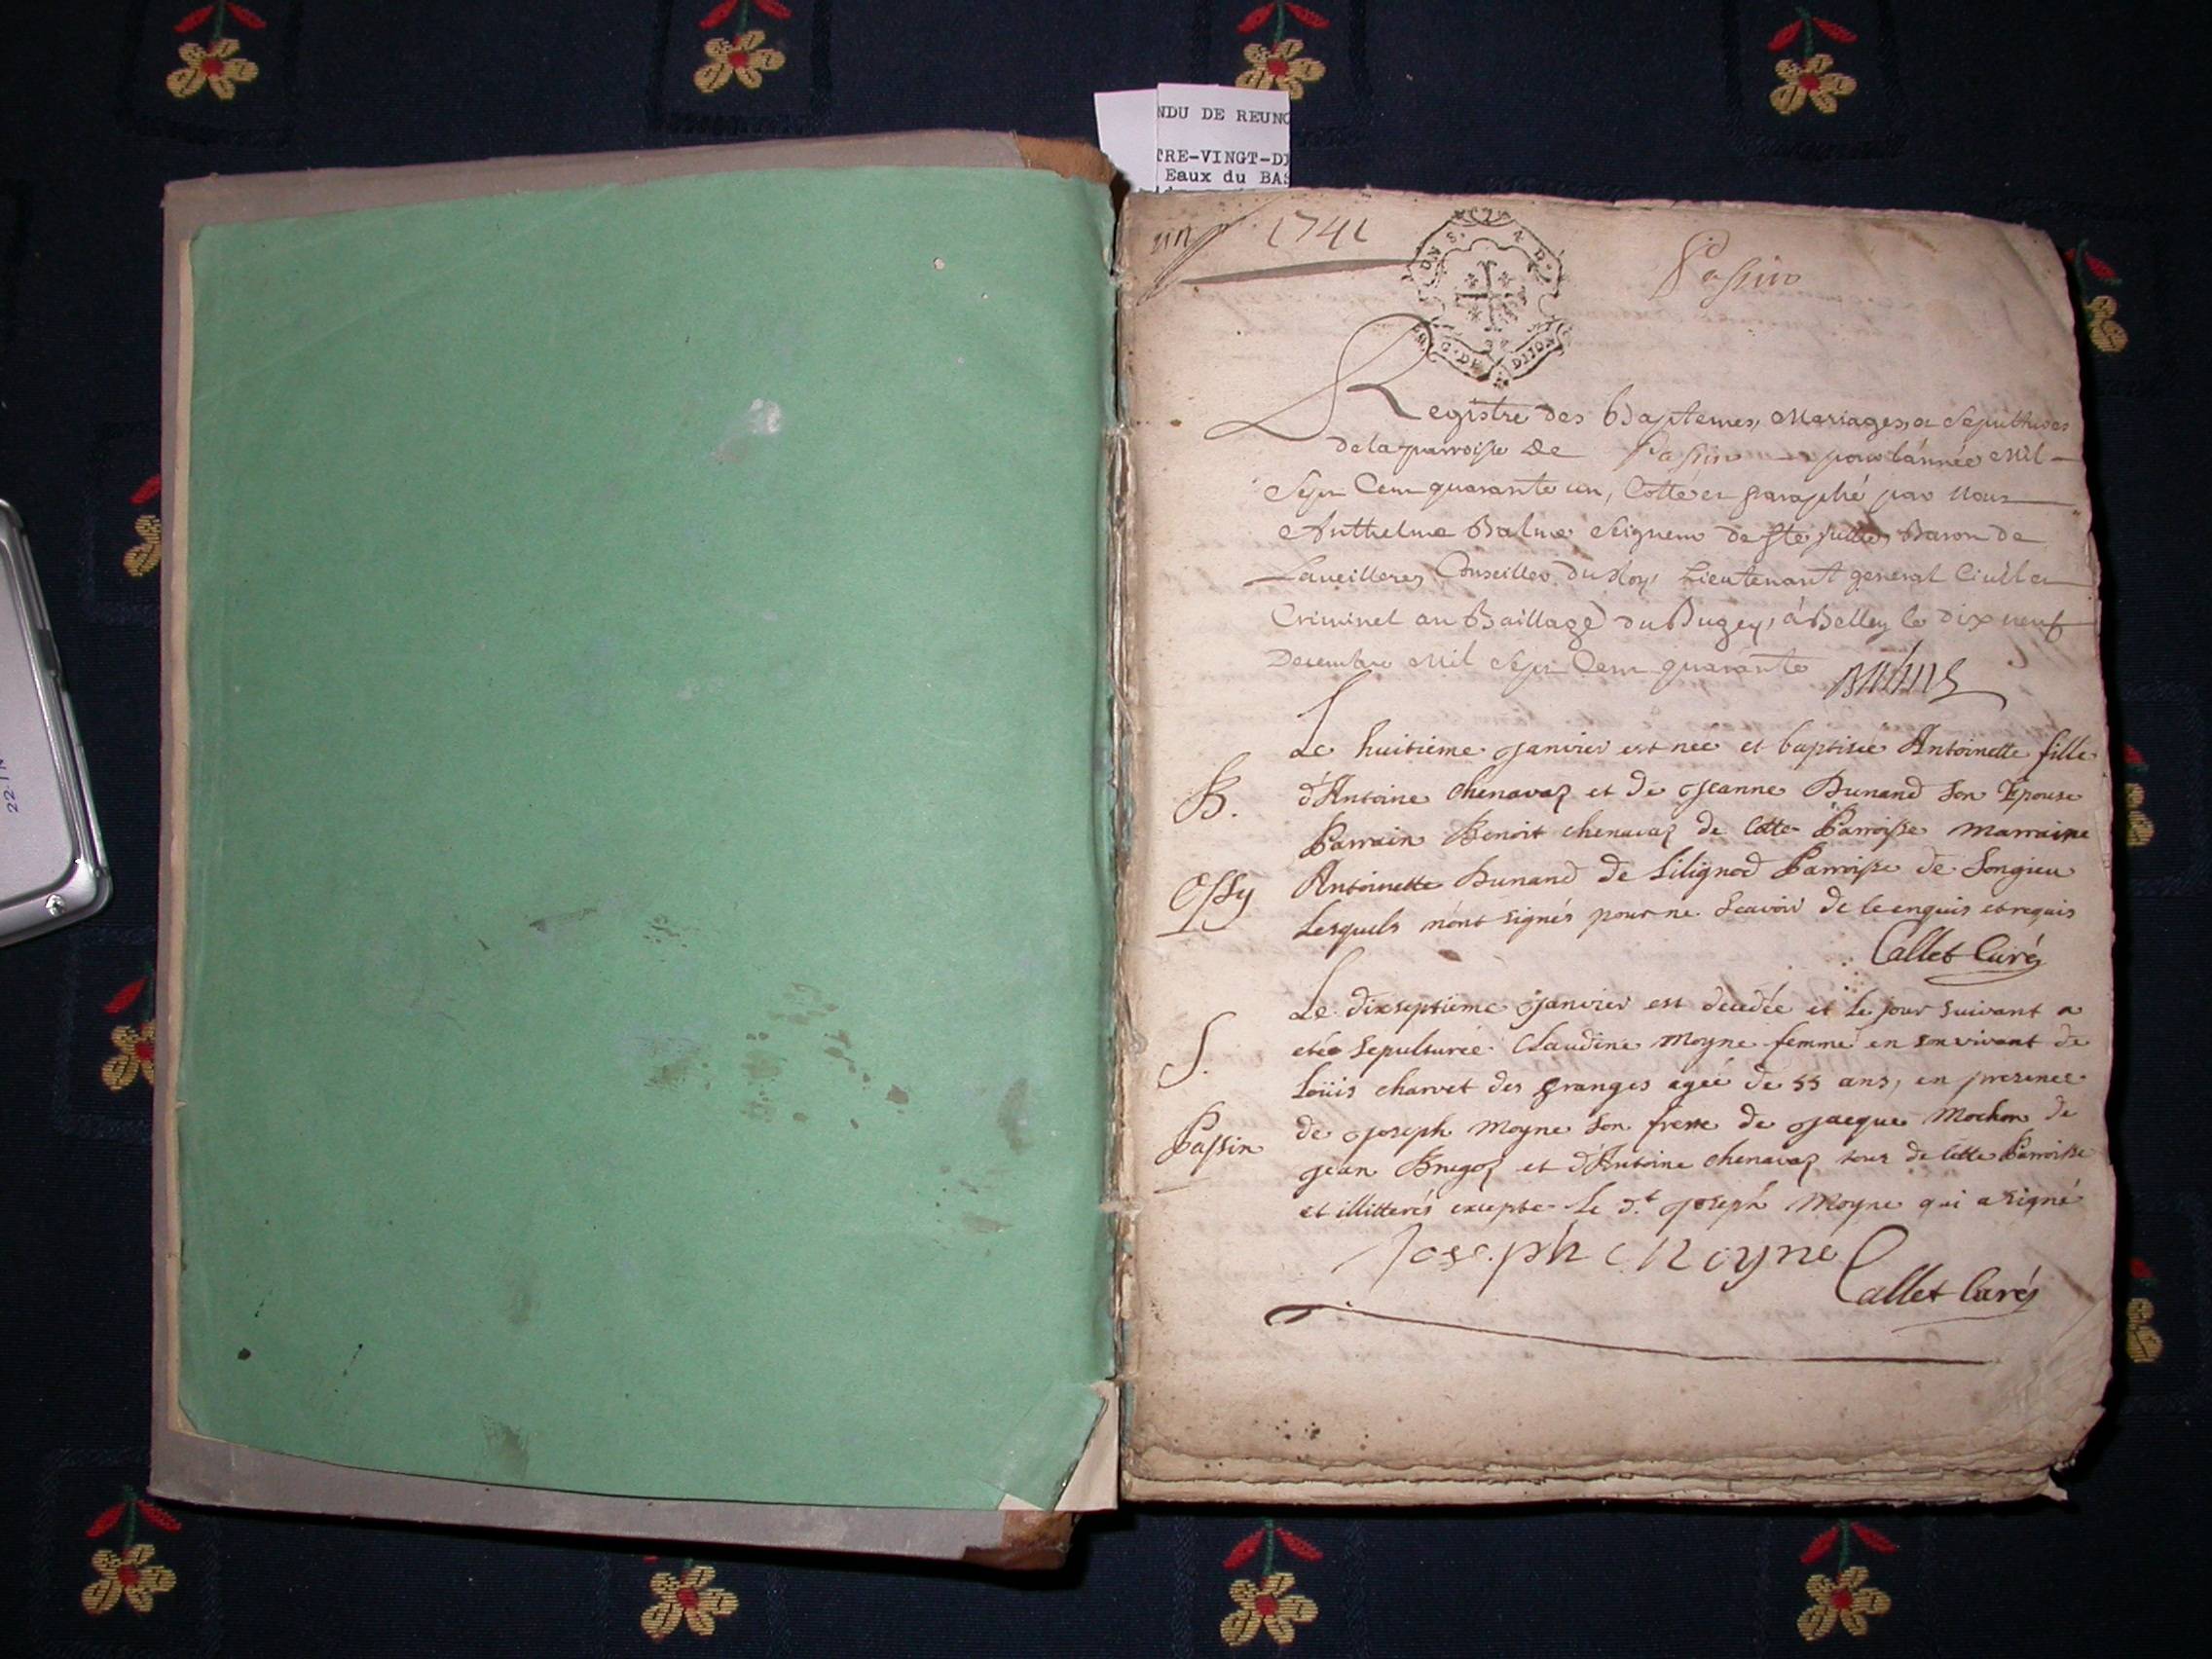 NDU DE REUNC
TRE-VINGT-DI
Eaux du BAS
22.1
1741
Passin
DIJON
Registre des Baptemes, Mariages, & Sepultures
de la parroisse de Passin pour l'année Mil
Sept Cent quarante un, Cotté et paraphé par Nous
Anthelme Balme Seigneur de Ste Julie, Baron de
Conseiller du Roy, Lieutenant general Civil et
Criminel au Baillage du Bugey, à Belley le dix neuf
Decembre Mil Sept Cent quarante
Balme
Le huitième janvier est née et baptisée Antoinette fille
B.
d'Antoine Chenavaz et de Jeanne Dunand son Epouse
Parrain Benoit chenavaz de Cette Parroisse marraine
Ossy
Antoinette Dunand de Lilignod Parroisse de Songieu
Lesquels n'ont signés pour ne scavoir de ce enquis et requis
Callet Curé
Le dixseptième janvier est decedée et Le jour suivant a
S.
etée sepulturée Claudine Moyne femme en son vivant de
Loüis charvet des granges agée de 55 ans, en presence
de joseph Moyne son frere de jacque Mochon de
Passin
jean Bregoz et d'Antoine Chenavaz tous de Cette Parroisse
et illitterés excepte Le d.t joseph Moyne qui a signé
Joseph Moyne
Callet Curé